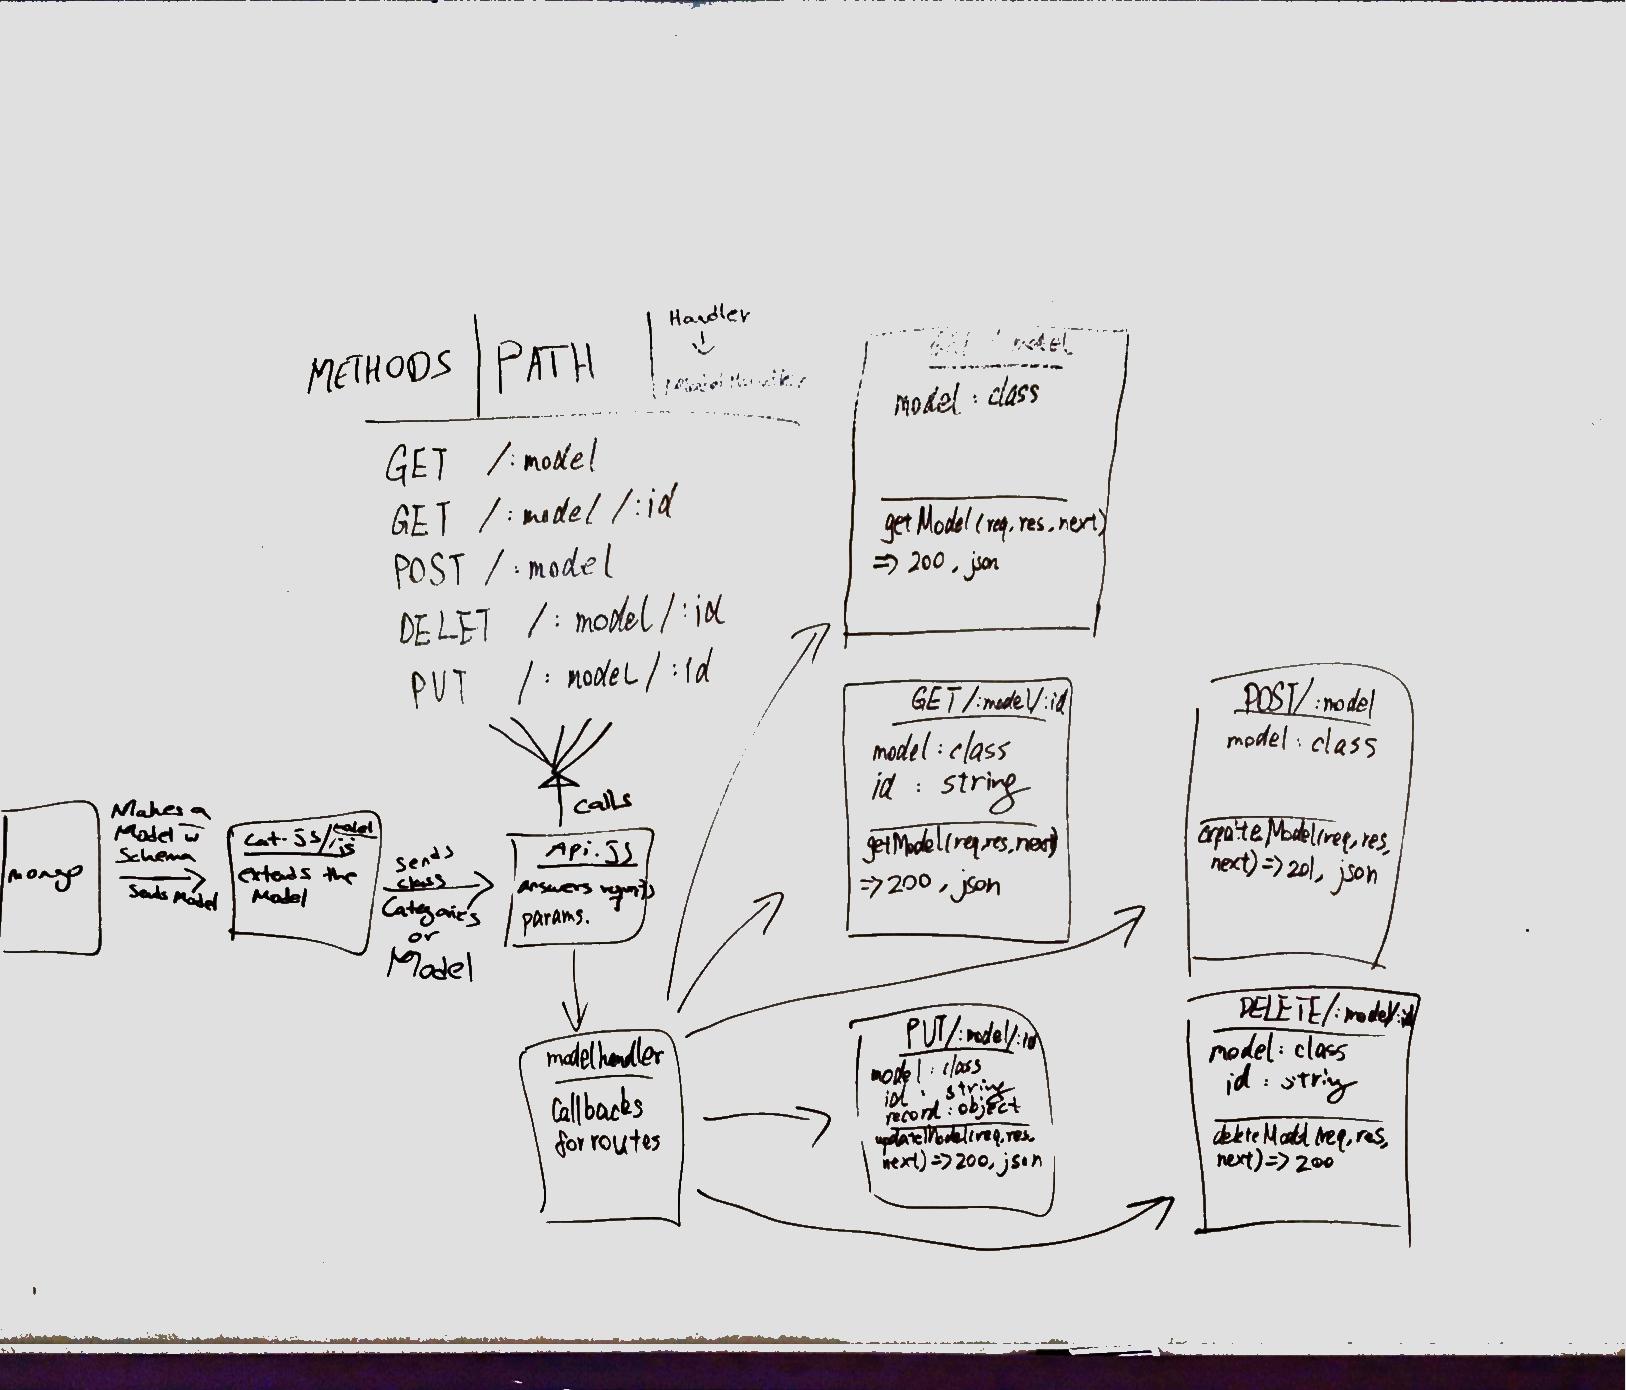 METHODS PATH Handler
GET /:model
GET /:model/:id
POST /:model
DELET /:model/:id
PUT /:model/:id
mongo
Makes a
Model w
Schema
Sends Model
Cat.js/model
js
extends the
Model
sends
class
Categories
or
Model
calls
Api.js
answers
params.
modelhandler
Callbacks
for routes
model
model : class
getModel(req, res, next)
=> 200, json
GET/:model/:id
model : class
id : string
getModel(req, res, next)
=> 200, json
POST/:model
model : class
createModel(req, res,
next) => 201, json
PUT/:model/:id
model : class
id : string
record : object
updateModel(req, res,
next) => 200, json
DELETE/:model/:id
model : class
id : string
deleteModel(req, res,
next) => 200